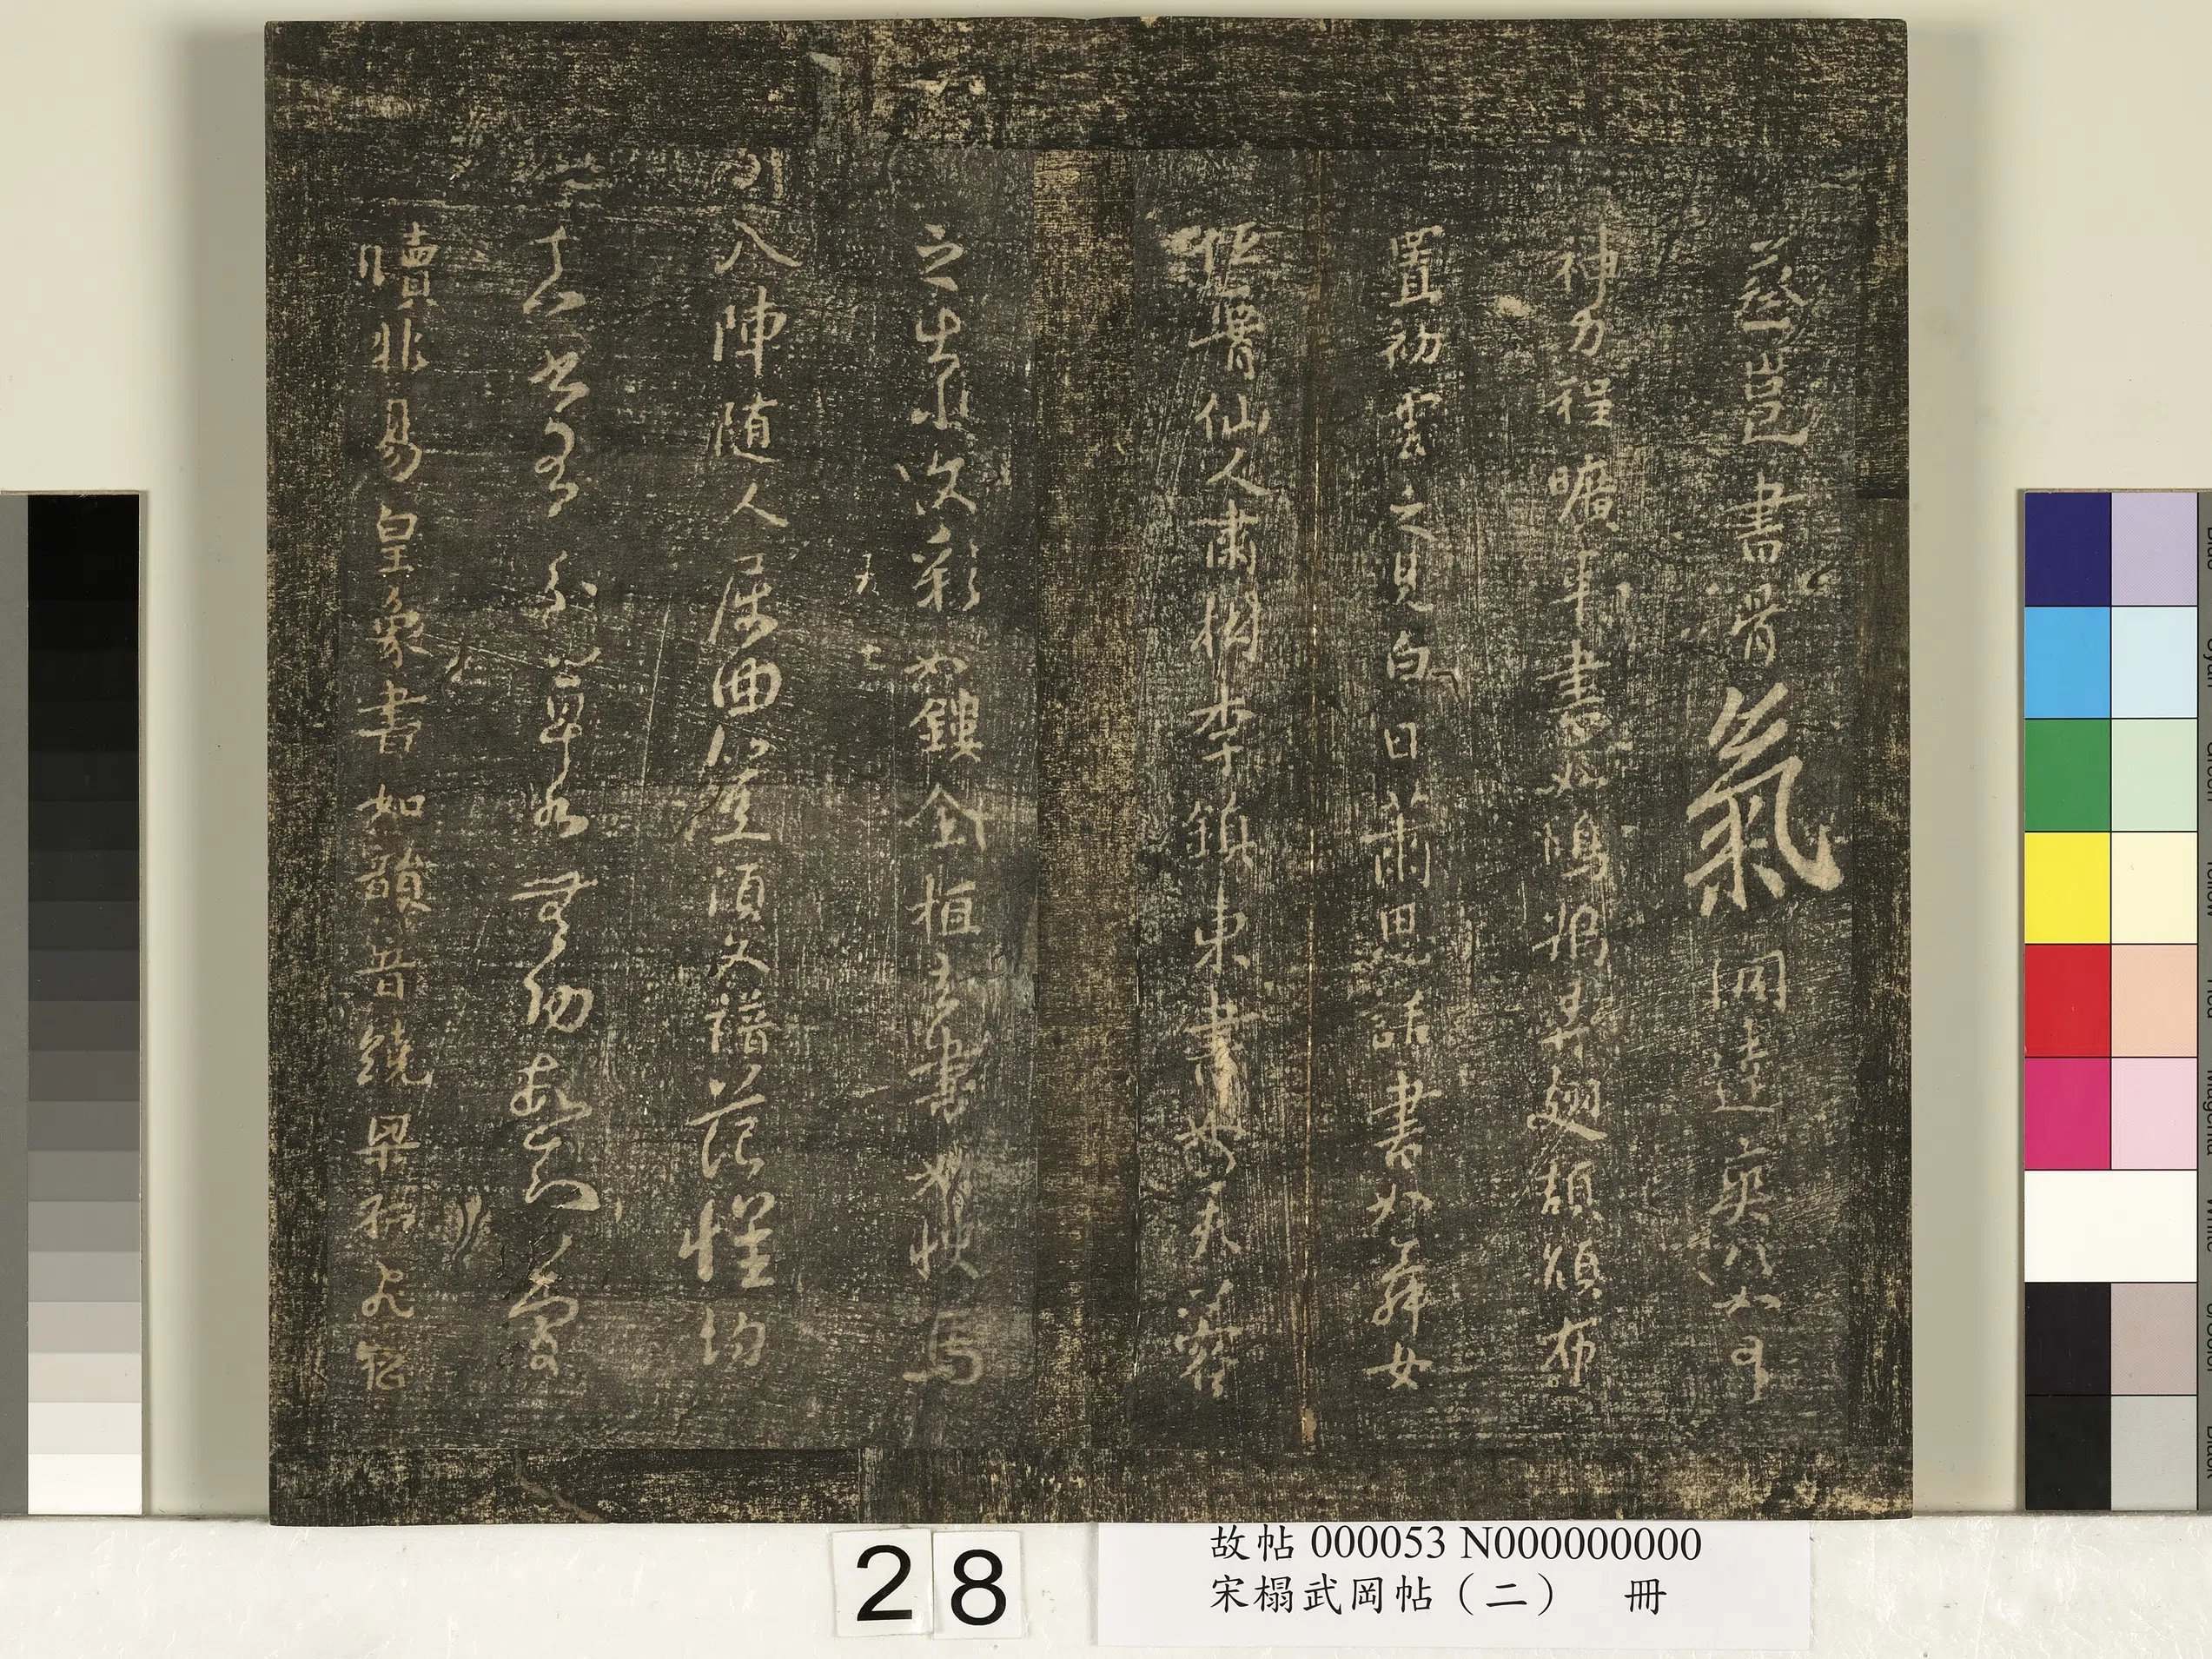 蔡邕書骨氣洞達爽爽如有
神力程曠平書如鴻鵠弄翅頡頏布
置初雲之見白日蕭思話書如舞女
低腰仙人嘯樹李鎮東書如芙蓉
之出水文彩如鏤金桓玄書如快馬
入陣隨人屈曲豈須文譜范懷約
真書有分草書無功故知簡
牘非易皇象書如韻音繞梁孤飛
28
故帖 000053 N000000000
宋榻武岡帖（二） 冊